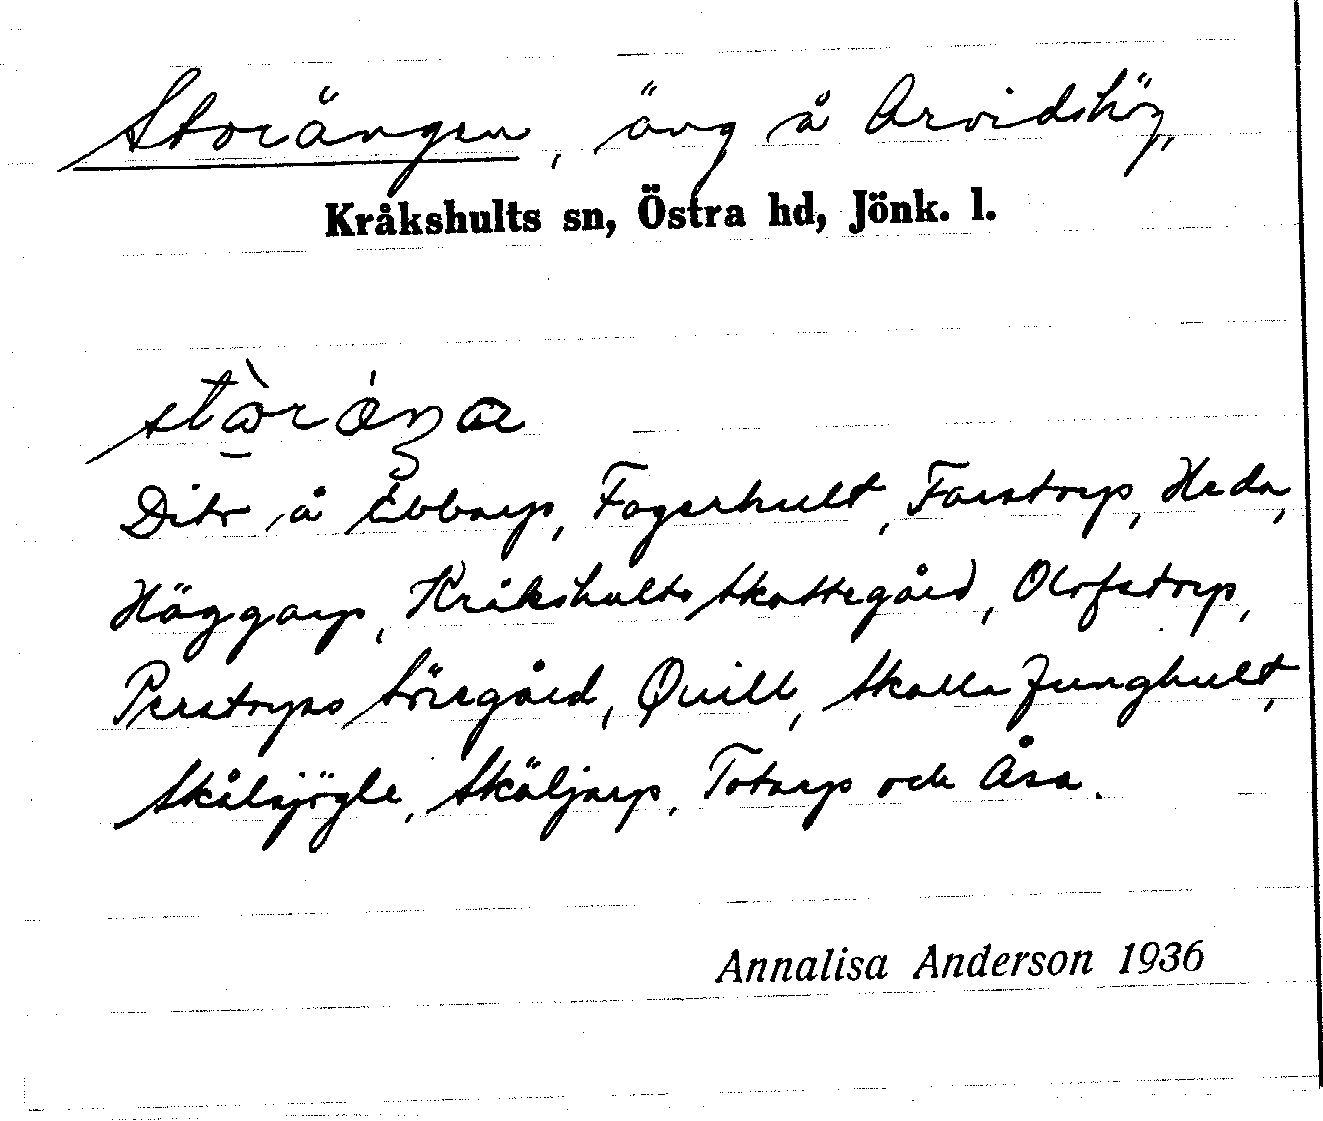 Storängen, äng å Arvidshög,
Kråkshults sn, Östra hd, Jönk. l.
Dito å Ebbarp, Fagerhult, Farstorp, Heda,
Häggarp, Kråkshults Skattegård, Olofstorp,
Perstorps Sörgård, Quill, Skalla Junghult,
Skälsjögle, Skäljarp, Totarp och Åsa.
Annalisa Anderson 1936